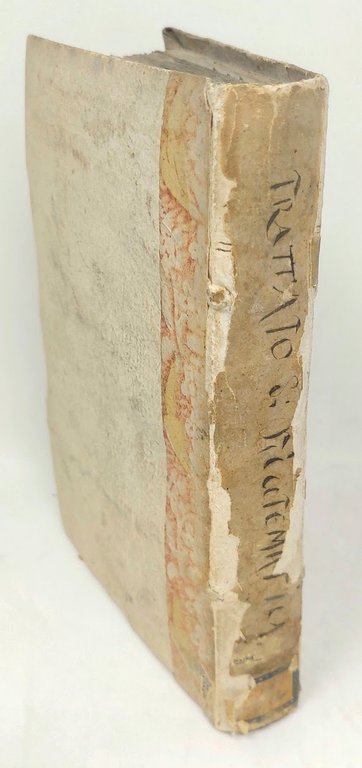 TRATTATO di MATEMATICA